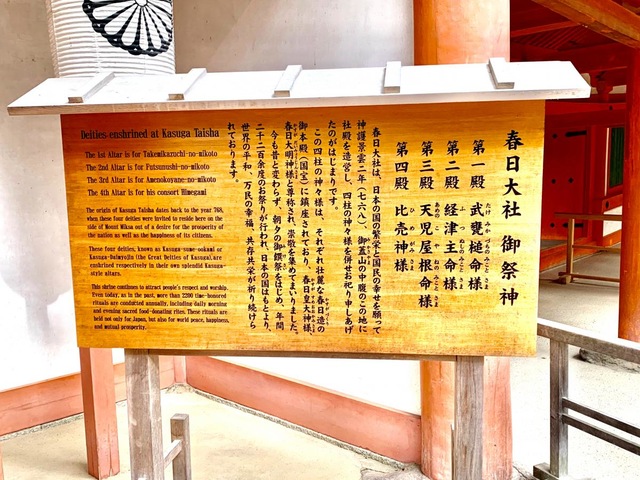 春日大社 御祭神
第一殿 武甕槌命様
たけみかづちのみことさま
第二殿 経津主命様
ふつぬしのみことさま
第三殿 天児屋根命様
あめのこやねのみことさま
第四殿 比売神様
ひめがみさま
春日大社は、日本の国の繁栄と国民の幸せを願って
神護景雲二年(七六八)、御蓋山の中腹のこの地に
社殿を造営し、四柱の神々様を併せお祀り申しあげ
たのがはじまりです。
この四柱の神々様は、それぞれ壮麗な春日造の
御本殿(国宝)に鎮座されており、春日皇大神様、
春日大明神様と尊称され崇敬を集めてまいりました。
今も昔と変わらず、朝夕の御饌祭をはじめ、年間
二千二百余度のお祭りが行われ、日本の国はもとより、
世界の平和、万民の幸福、共存共栄が祈り続けら
れております。
Deities-enshrined at Kasuga Taisha
The 1st Altar is for Takemikazuchi-no-mikoto
The 2nd Altar is for Futsunushi-no-mikoto
The 3rd Altar is for Amenokoyane-no-mikoto
The 4th Altar is for his consort Himegami
The origin of Kasuga Taisha dates back to the year 768,
when these four deities were invited to reside here on the
side of Mount Mikas out of a desire for the prosperity
of the nation as well as the happiness of its citizens.
These four deities, known as Kasuga-sume-ookami or
Kasuga-daimyojin (the Great Deities of Kasuga), are
enshrined respectively in their own splendid Kasuga-
style altars.
This shrine continues to attract people's respect and worship.
Even today, as in the past, more than 2200 time-honored
rituals are conducted annually, including daily morning
and evening sacred food-donating rites. These rituals are
held not only for Japan, but also for world peace, happiness,
and mutual prosperity.